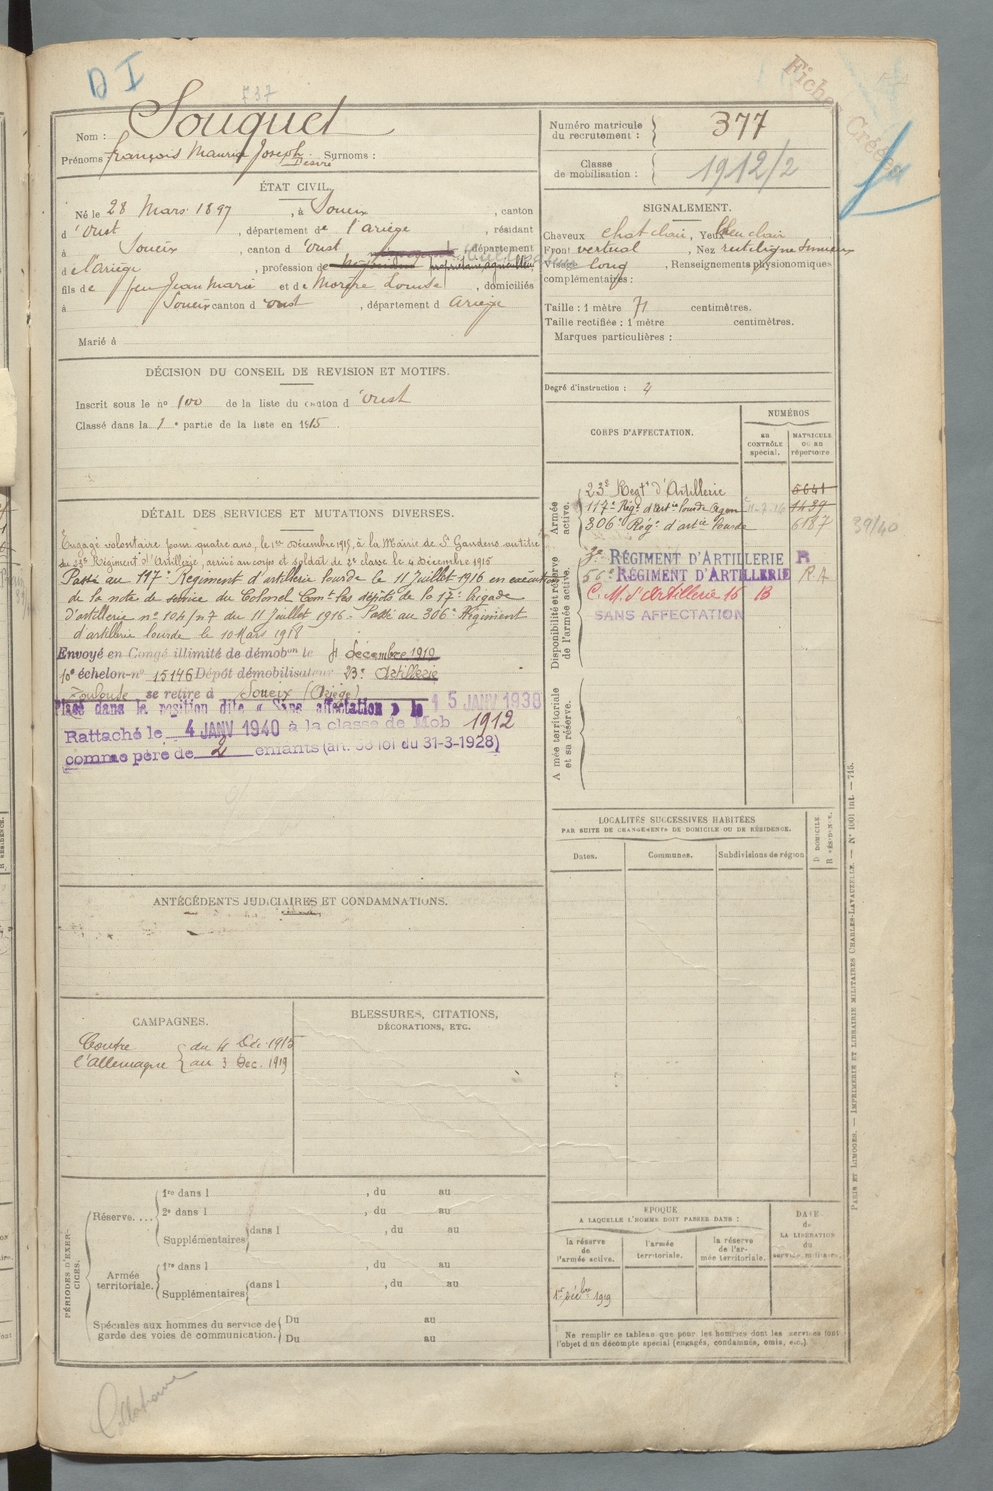 D I
737
Fiches Créées
Nom : Souquet
Prénoms françois Maurice Joseph Désiré Surnoms :
Numéro matricule
du recrutement : 377
Classe
de mobilisation : 1912/2
ÉTAT CIVIL.
Né le 28 Mars 1897, à Soueix, canton
d'Oust, département de l'ariège, résidant
à Soueix, canton d'Oust, département
de l'ariège, profession de propriétaire agriculteur
fils de feu Jean Marie et de Louise, domiciliés
à Soueix canton d'Oust, département d ariège
Marié à
SIGNALEMENT.
Cheveux chat clair, Yeux bleu clair
Front vertical, Nez rectiligne
Visage long, Renseignements physionomiques
complémentaires :
Taille : 1 mètre 71 centimètres.
Taille rectifiée : 1 mètre centimètres.
Marques particulières :
DÉCISION DU CONSEIL DE REVISION ET MOTIFS.
Inscrit sous le no 100 de la liste du canton d'Oust
Classé dans la 1e partie de la liste en 1915.
Degré d'instruction : 2
CORPS D'AFFECTATION.
NUMÉROS
au
CONTRÔLE
spécial.
MATRICULE
OU AU
répertoire
Armée
active.
23e Regt d'Artillerie 5641
117e Régt d'artie lourde 1439
306e Régt d'artie lourde 6187
39/40
Disponibilité et réserve
de l'armée active.
3e RÉGIMENT D'ARTILLERIE R
56e RÉGIMENT D'ARTILLERIE R.A
C. M. d'Artillerie 16 B
SANS AFFECTATION
Armée territoriale
et sa réserve.
DÉTAIL DES SERVICES ET MUTATIONS DIVERSES.
Engagé volontaire pour quatre ans, le 1er décembre 1915, à la Mairie de St Gaudens au titre
du 23e Régiment d'Artillerie, arrivé au corps et soldat de 2e classe le 4 décembre 1915
Passé au 117e Régiment d'artillerie lourde le 11 Juillet 1916 en exécution
de la note de service du Colonel Comt les dépôts de la 17e brigade
d'artillerie no 104/n7 du 11 Juillet 1916. Passé au 306e Régiment
d'artillerie lourde le 10 Mars 1918
Envoyé en Congé illimité de démobon le 4 décembre 1919
10e échelon - no 15146 Dépôt démobilisateur 23e Artillerie
Toulouse se retire à Soueix (Ariège)
Placé dans la position dite « Sans affectation » le 15 JANV 1938
Rattaché le 4 JANV 1940 à la classe de Mob 1912
comme père de 2 enfants (art. 58 loi du 31-3-1928)
LOCALITÉS SUCCESSIVES HABITÉES
PAR SUITE DE CHANGEMENTS DE DOMICILE OU DE RÉSIDENCE.
Dates.
Communes.
Subdivisions de région
D DOMICILE.
R RÉSIDENCE.
ANTÉCÉDENTS JUDICIAIRES ET CONDAMNATIONS.
CAMPAGNES.
Contre
l'Allemagne
du 4 Déc. 1915
au 3 Dec. 1919
BLESSURES, CITATIONS,
DÉCORATIONS, ETC.
PÉRIODES D'EXERCICES.
Réserve....
1re dans l , du au
2e dans l , du au
Supplémentaires dans l , du au
Armée
territoriale.
1re dans l , du au
Supplémentaires dans l , du au
Spéciales aux hommes du service de
garde des voies de communication.
Du au
Du au
ÉPOQUE
A LAQUELLE L'HOMME DOIT PASSER DANS :
la réserve
de
l'armée active.
l'armée
territoriale.
la réserve
de l'ar-
mée territoriale.
DATE
de
LA LIBÉRATION
du
service militaire.
1er décbre 1919
Ne remplir ce tableau que pour les hommes dont les services font
l'objet d'un décompte spécial (engagés, condamnés, omis, etc.)
PARIS ET LIMOGES. — IMPRIMERIE ET LIBRAIRIE MILITAIRES CHARLES-LAVAUZELLE. — No 1001 int. — 715.